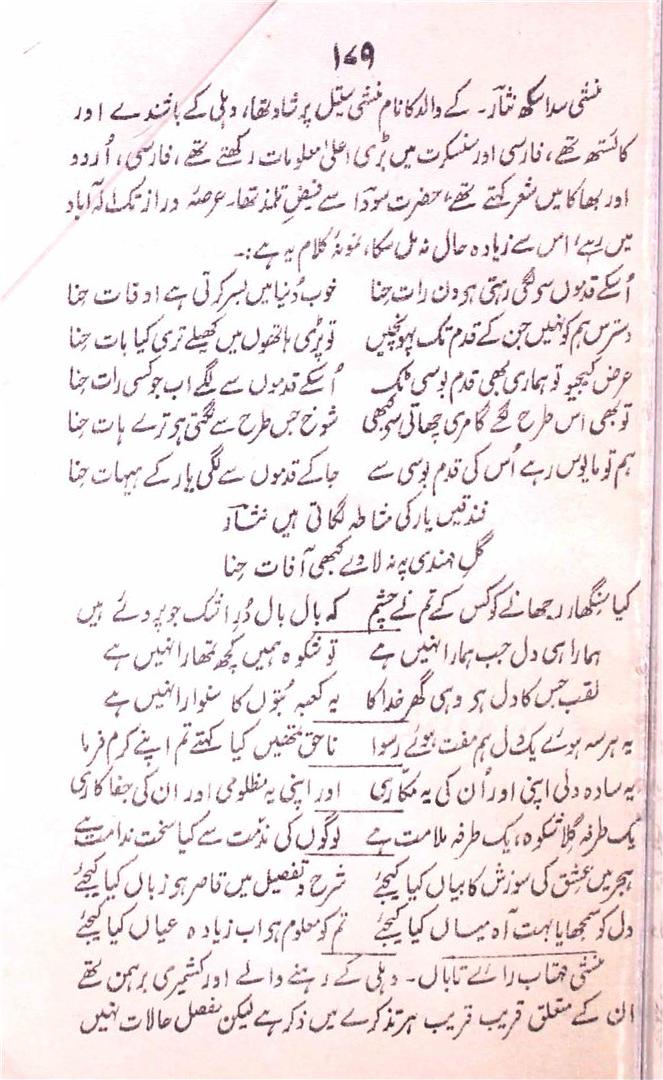 ۱۷۹
منشی سدا سکھ نثار۔ کے والد کا نام منشی سیتل پرشاد تھا، دہلی کے باشندے اور
کائستھ تھے، فارسی اور سنسکرت میں بڑی اعلیٰ معلومات رکھتے تھے، فارسی، اُردو
اور بھاکا میں شعر کہتے تھے، حضرت سودا سے فیضِ تلمذ تھا۔ عرصۂ دراز تک الہ آباد
میں رہے، اس سے زیادہ حال نہ مل سکا، نمونۂ کلام یہ ہے:۔
اُسکے قدموں سو لگی رہتی ہو دن رات حِنا خوب دُنیا میں بسر کرتی ہے اوقات حِنا
دسترس ہم کو نہیں جن کے قدم تک پہونچیں تو پڑی ہاتھوں میں کھیلے تری کیا بات حِنا
عرض کیجیو تو ہماری بھی قدم بوسی تک اُسکے قدموں سے لگے اب جو کسی رات حِنا
تو بھی اس طرح لگے گا مری چھاتی سو کبھی شوخ جس طرح سے لگتی ہو ترے ہات حِنا
ہم تو مایوس رہے اُس کی قدم بوسی سے جا کے قدموں سے لگی یار کے ہیہات حِنا
فندقیں یار کی مشاطہ لگاتی ہیں نثار
گلِ مہندی پہ نہ لاوے کبھی آفات حِنا
کیا سِنگھار رجھانے کو کس کے تم نے چشم کہ بال بال دُرِ اشک جو پروئے ہیں
ہمارا ہی دل جب ہمارا نہیں ہے تو شکوہ ہمیں کچھ تمھارا نہیں ہے
لقب جس کا دل ہو وہی گھر خدا کا یہ کعبہ بُتوں کا سنوارا نہیں ہے
یہ ہرسہ ہوئے یک دل ہم مفت ہوئے رسوا ناحق تمھیں کیا کہتے تم اپنے کرم فرما
یہ سادہ دلی اپنی اور اُن کی یہ مکاری اور اپنی یہ مظلومی اور ان کی جفاکاری
یک طرفہ گلا شکوہ، یک طرفہ ملامت ہے لوگوں کی مذمت سے کیا سخت ندامت ہے
ہجر میں عشق کی سوزش کا بیاں کیا کیجئے شرح و تفصیل میں قاصر ہو زباں کیا کیجئے
دل کو سمجھایا بہت آہ میاں کیا کیجئے تم کو معلوم ہو اب زیادہ عیاں کیا کیجئے
منشی مہتاب رائے تاباں۔ دہلی کے رہنے والے اور کشمیری برہمن تھے
ان کے متعلق قریب قریب ہر تذکرے میں ذکر ہے لیکن مفصل حالات نہیں